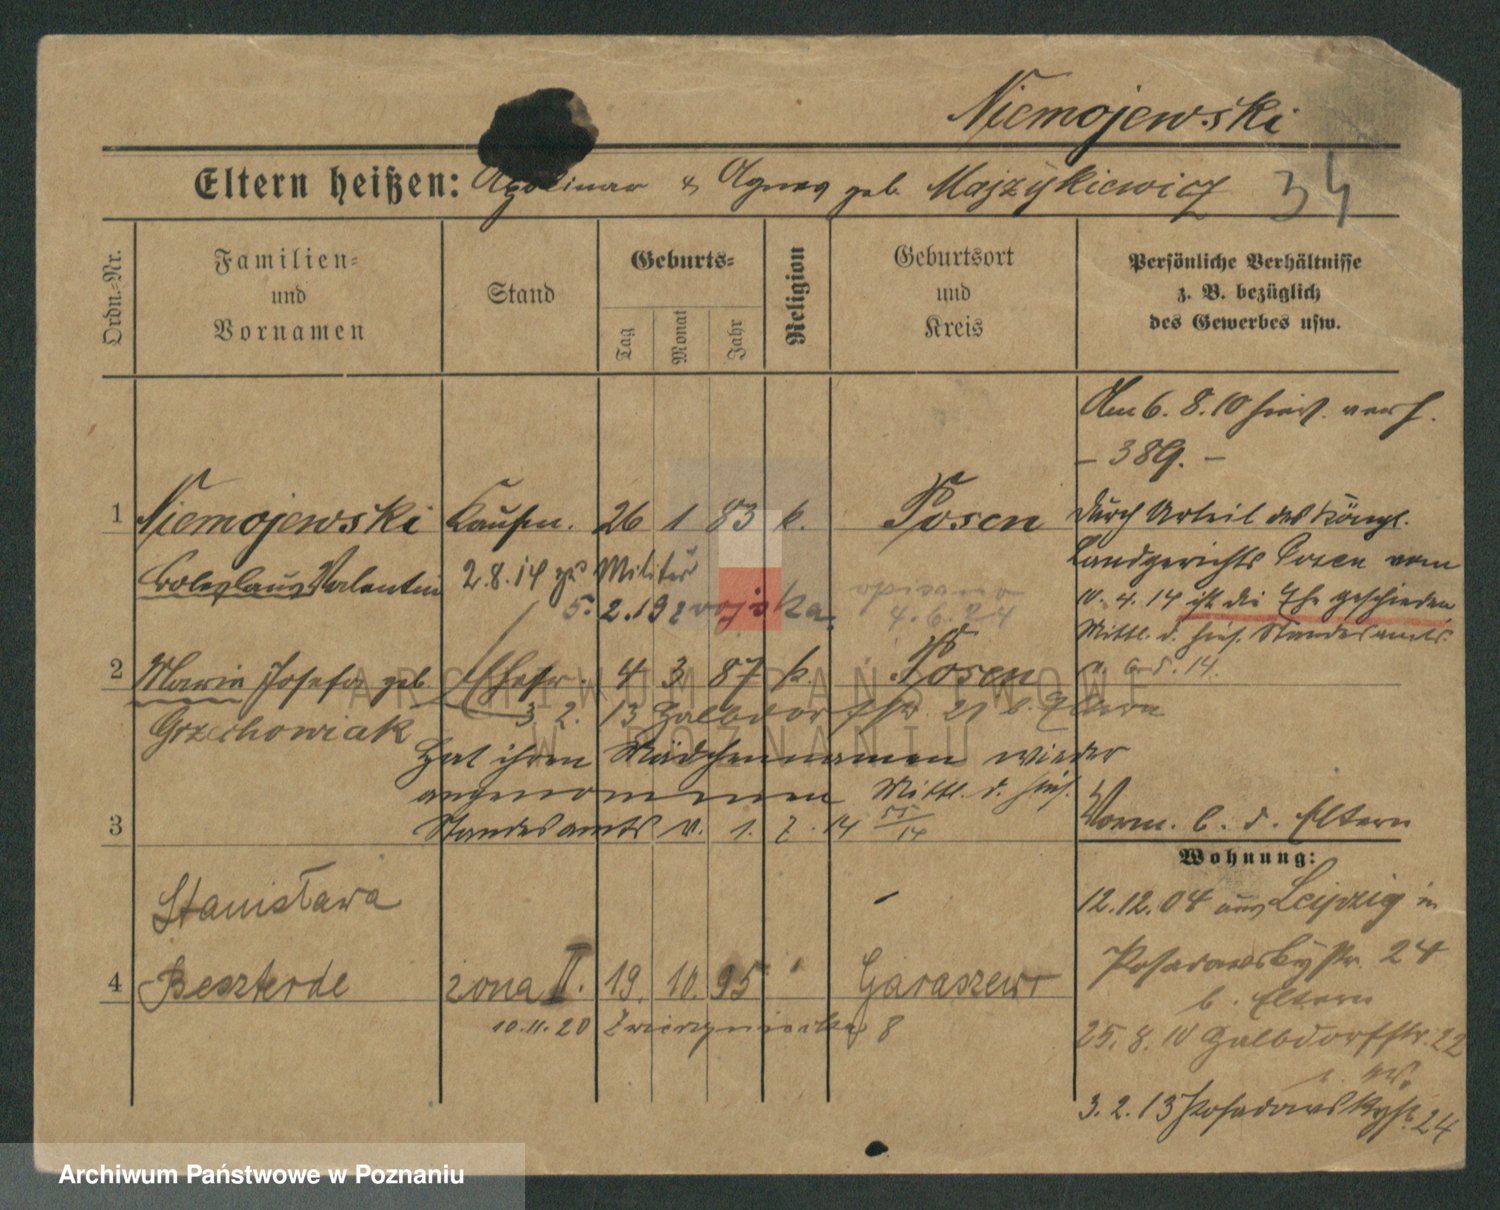 Niemojewski
Eltern heißen: Apolinar & Agnes geb. Majzykiewicz
34
Ordn.-Nr.
Familien-
und
Vornamen
Stand
Geburts-
Tag
Monat
Jahr
Religion
Geburtsort
und
Kreis
Persönliche Verhältnisse
z. B. bezüglich
des Gewerbes usw.
Am 6. 8. 10 hies. verh.
- 389. -
1 Niemojewski Kaufm. 26 1 83 k. Posen
durch Urteil des Königl.
Landgerichts Posen vom
Boleslaus Valentin 2.8.14 zu Militär
10. 4. 14 ist die Ehe geschieden
5. 2. 19 z wojska
4. 6. 24
Mittl. d. hies. Standesamts
2 Maria Josefa geb. Ehefr. 4 3 87 k. Posen
v. 14.
Grzechowiak 3 2. 13 Halbdorfstr. b. Eltern
Hat ihren Mädchennamen wieder
angenommen Mittl. d. hies.
3 Standesamts v. 1. 7. 14
Vorm. b. d. Eltern
Wohnung:
Stanisława
12.12.04 aus Leipzig in
Posadowskystr. 24
4 Beszterde żona II. 19. 10. 95 Garaszewo
b. Eltern
10.11.20 Zwierzyniecka 8
25. 8. 10 Halbdorfstr. 22
3. 2. 13 Posadowskystr. 24
ARCHIWUM PAŃSTWOWE
W POZNANIU
Archiwum Państwowe w Poznaniu